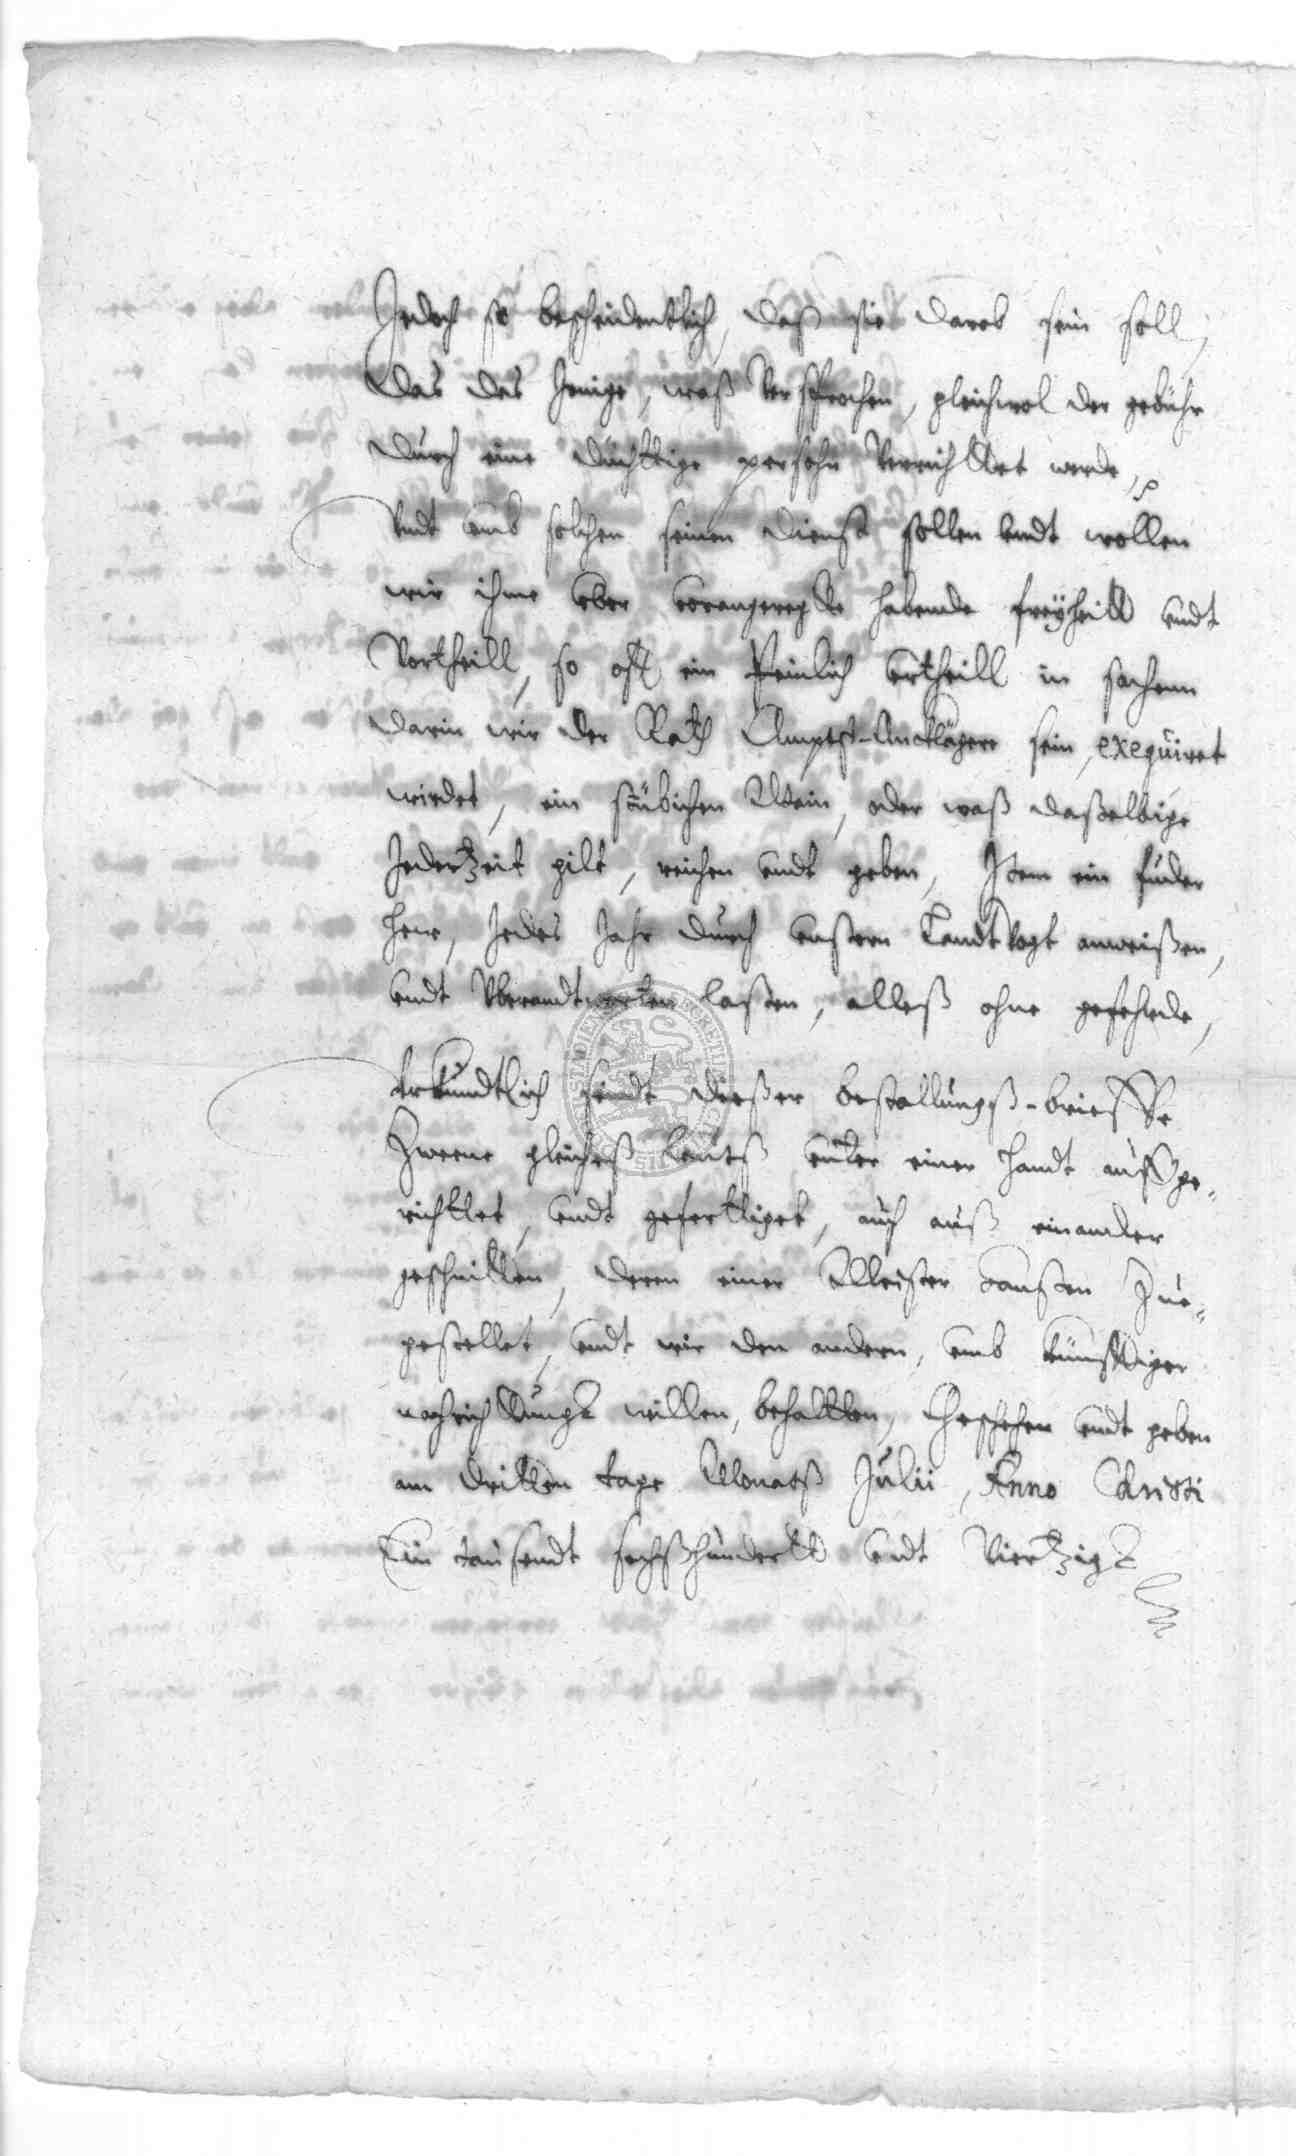 Jedoch so bescheidentlich, daß sie darob sein soll,
Das das Jenige, waß versprochen, gleichwol der gebühr
durch eine düchttige persohn verrichttet werde,
Vndt umb solchen seinen dienst sollen undt wollen
wir ihme über vorangeregtte habende freyheitt undt
Vortheill, so oft ein Peinlich urtheill in sachenn
darin wir der Rath Ampts-Anclägere sein, exequiret
wirdet, ein stübichen Wein, oder waß daßelbige
Jederzeit gilt, reichen undt geben, Item ein fuder
Hew, Jedes Jahr durch unsern Landtvogt anweißen,
undt Uberandtworten laßen, alleß ohne gefehrde,
Urkundtlich seindt dießer bestallungß-brieffe
Zweene gleicheß lautß unter einer Handt auffge-
richttet, undt gefertiget, auch auß einander
geschnitten, deren einer Meister Zue-
gestellet, undt wir den andern, umb künfftiger
nachrichtung willen, behaltten, Geschehen undt geben
am dritten tage Monatß Julii, Anno Christi
Ein tausendt sechßhundertt undt Viertzigk